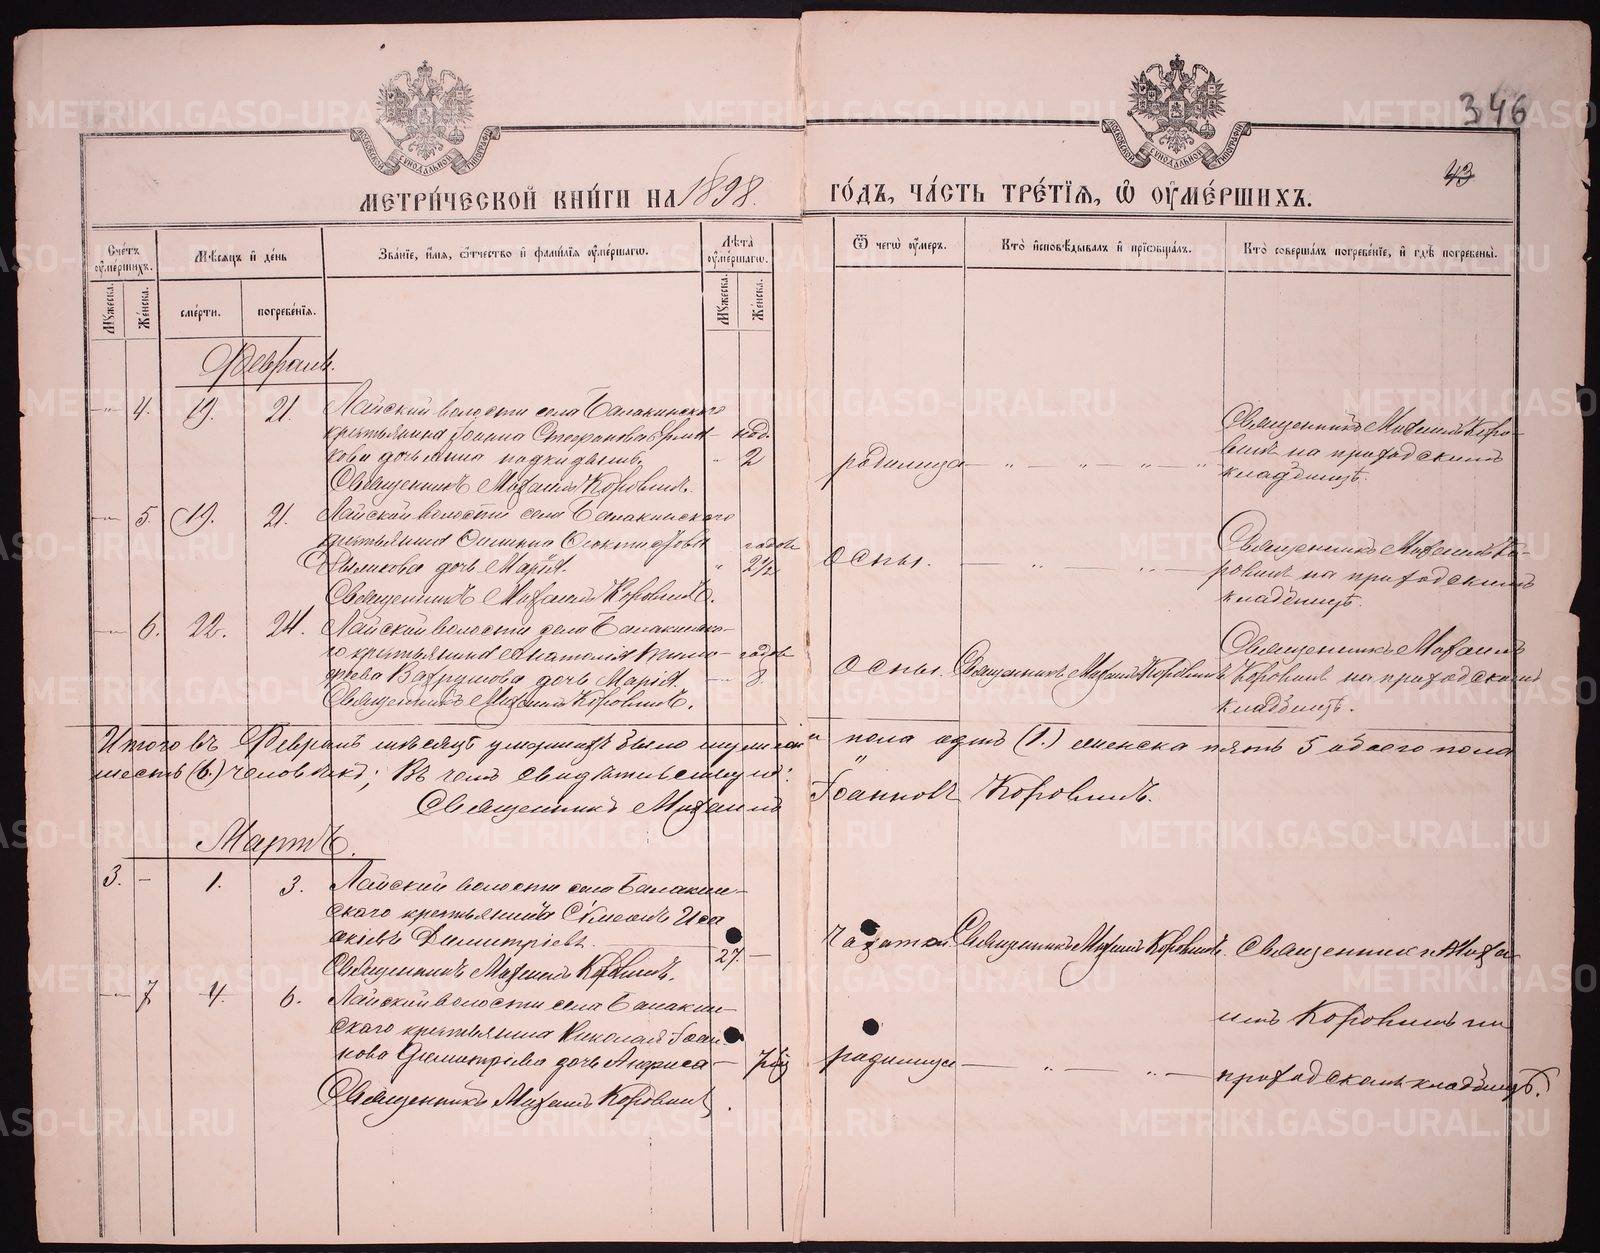 346
43
МЕТРИ́ЧЕСКОЙ КНИ́ГИ НА 1898. ГО́ДЪ, ЧА́СТЬ ТРЕ́ТІЯ, Ѡ ОУМЕ́РШИХЪ.
Сче́тъ оуме́ршихъ.
Мѣ́сяцъ и де́нь
Зва́ніе, и́мя, о́тчество и фами́лія оуме́ршагѡ.
Лѣта̀ оуме́ршагѡ.
Ѿ чегѡ̀ оу́меръ.
Кто̀ исповѣ́дывалъ и пріѡбща́лъ.
Кто̀ соверша́лъ погребе́ніе, и гдѣ̀ погребены̀.
Му́жеска.
Же́нска.
сме́рти.
погребе́нія.
Му́жеска.
Же́нска.
Февраль.
4. 19. 21. Лайской волости села Балакинского
крестьянина Іоанна Стефанова
дочь Анна
год. 2
родимца
Священникъ Михаилъ Коро-
винъ на приходскомъ
кладбищѣ.
Священникъ Михаилъ Коровинъ.
5. 19. 21. Лайской волости села Балакинского
крестьянина
дочь Марія.
годов 2 1/2
оспы.
Священникъ Михаилъ Ко-
ровинъ на приходскомъ
кладбищѣ.
Священникъ Михаилъ Коровинъ.
6. 22. 24. Лайской волости села Балакинско-
го крестьянина Анатолія Тимо-
феева Вахрушова дочь Марія
годов 8
оспы. Священникъ Михаилъ Коровинъ
Священникъ Михаилъ
Коровинъ на приходскомъ
кладбищѣ.
Священникъ Михаилъ Коровинъ.
Итого въ Февралѣ мѣсяцѣ умершихъ было мужеска пола одинъ (1.) женска пять 5 обоего пола
шесть (6.) человѣкъ; въ чемъ свидѣтельствую:
Священникъ Михаилъ Іоанновъ Коровинъ.
Мартъ.
3. 1. 3. Лайской волости села Балакин-
ского крестьянинъ Симеонъ Иса-
акіевъ Димитріевъ.
27.
чахотки Священникъ Михаилъ Коровинъ. Священникъ Миха-
Священникъ Михаилъ Коровинъ.
7 4. 6. Лайской волости села Балакин-
ского крестьянина Николая Іоан-
нова Димитріева дочь Анфиса
родимца
илъ Коровинъ на
приходскомъ кладбищѣ.
Священникъ Михаилъ Коровинъ.
METRIKI.GASO-URAL.RU